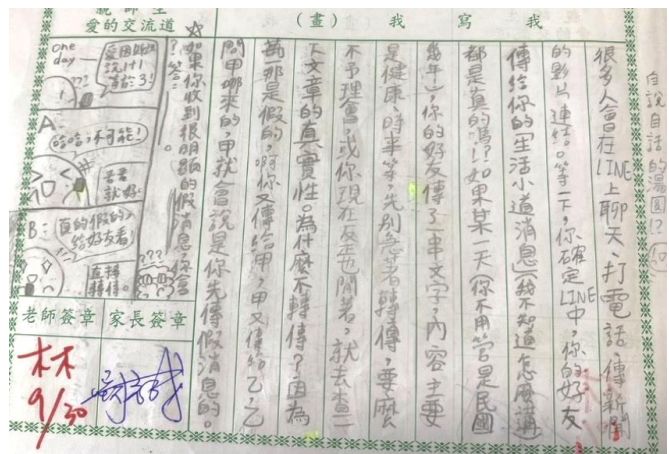 愛的交流道
我寫我(畫)
自說自話的湯圓!?(10)
很多人會在LINE上聊天、打電話、傳新聞
的影片連結。等一下,你確定LINE中,你的好友
傳給你的「生活小道消息」(我不知道怎麼講)
都是真的嗎!?如果某一天(你不用管是民國
幾年),你的好友傳了一串文字,內容主要
是健康、時事等,先別急著轉傳,要麼
不予理會,或你現在反正也閒著,就去查一
下文章的真實性。為什麼不轉傳?因為
萬一那是假的,啊你又傳給甲,甲又傳給乙,乙
問甲哪來的,甲就會說是你先傳假消息的。
☆如果你收到很明顯的假消息,你會
?答:
one day
說1+1
等於3!
???
A:
哈哈,不可能!
看看就好
B:
真的假的>
給好友看!
直接轉傳。
???
老師簽章
家長簽章
林
9/30